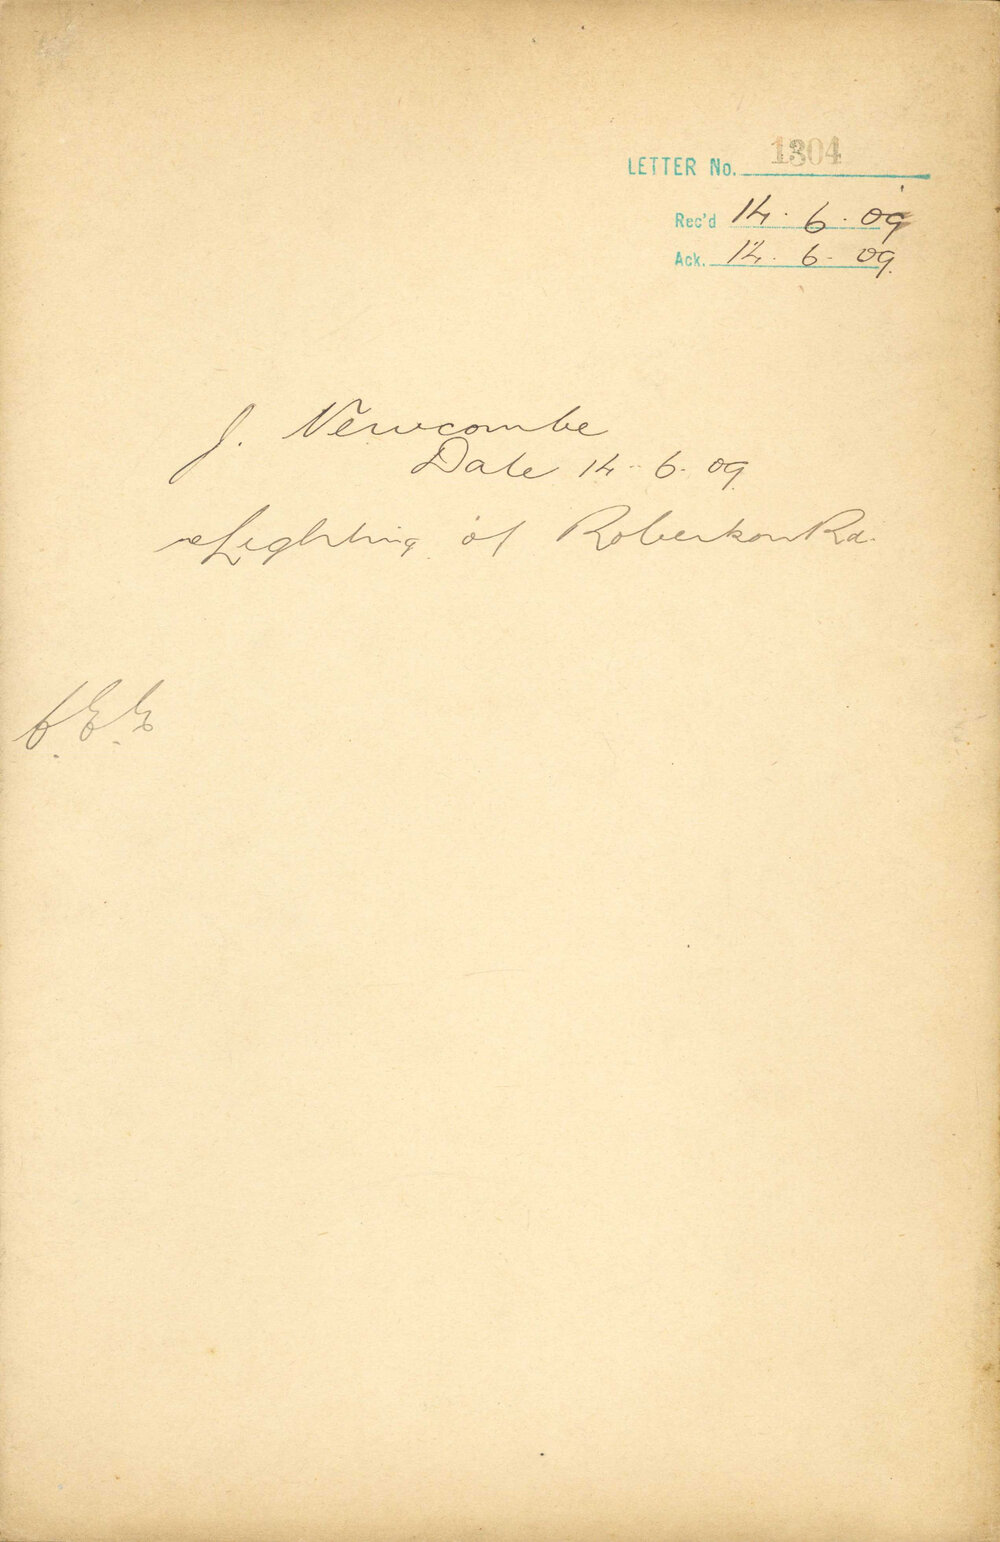 LETTER No. 1304
Rec'd 14. 6. 09
Ack. 14. 6. 09.
J. Newcombe
Date 14. 6. 09
re Lighting of Robertson Rd.